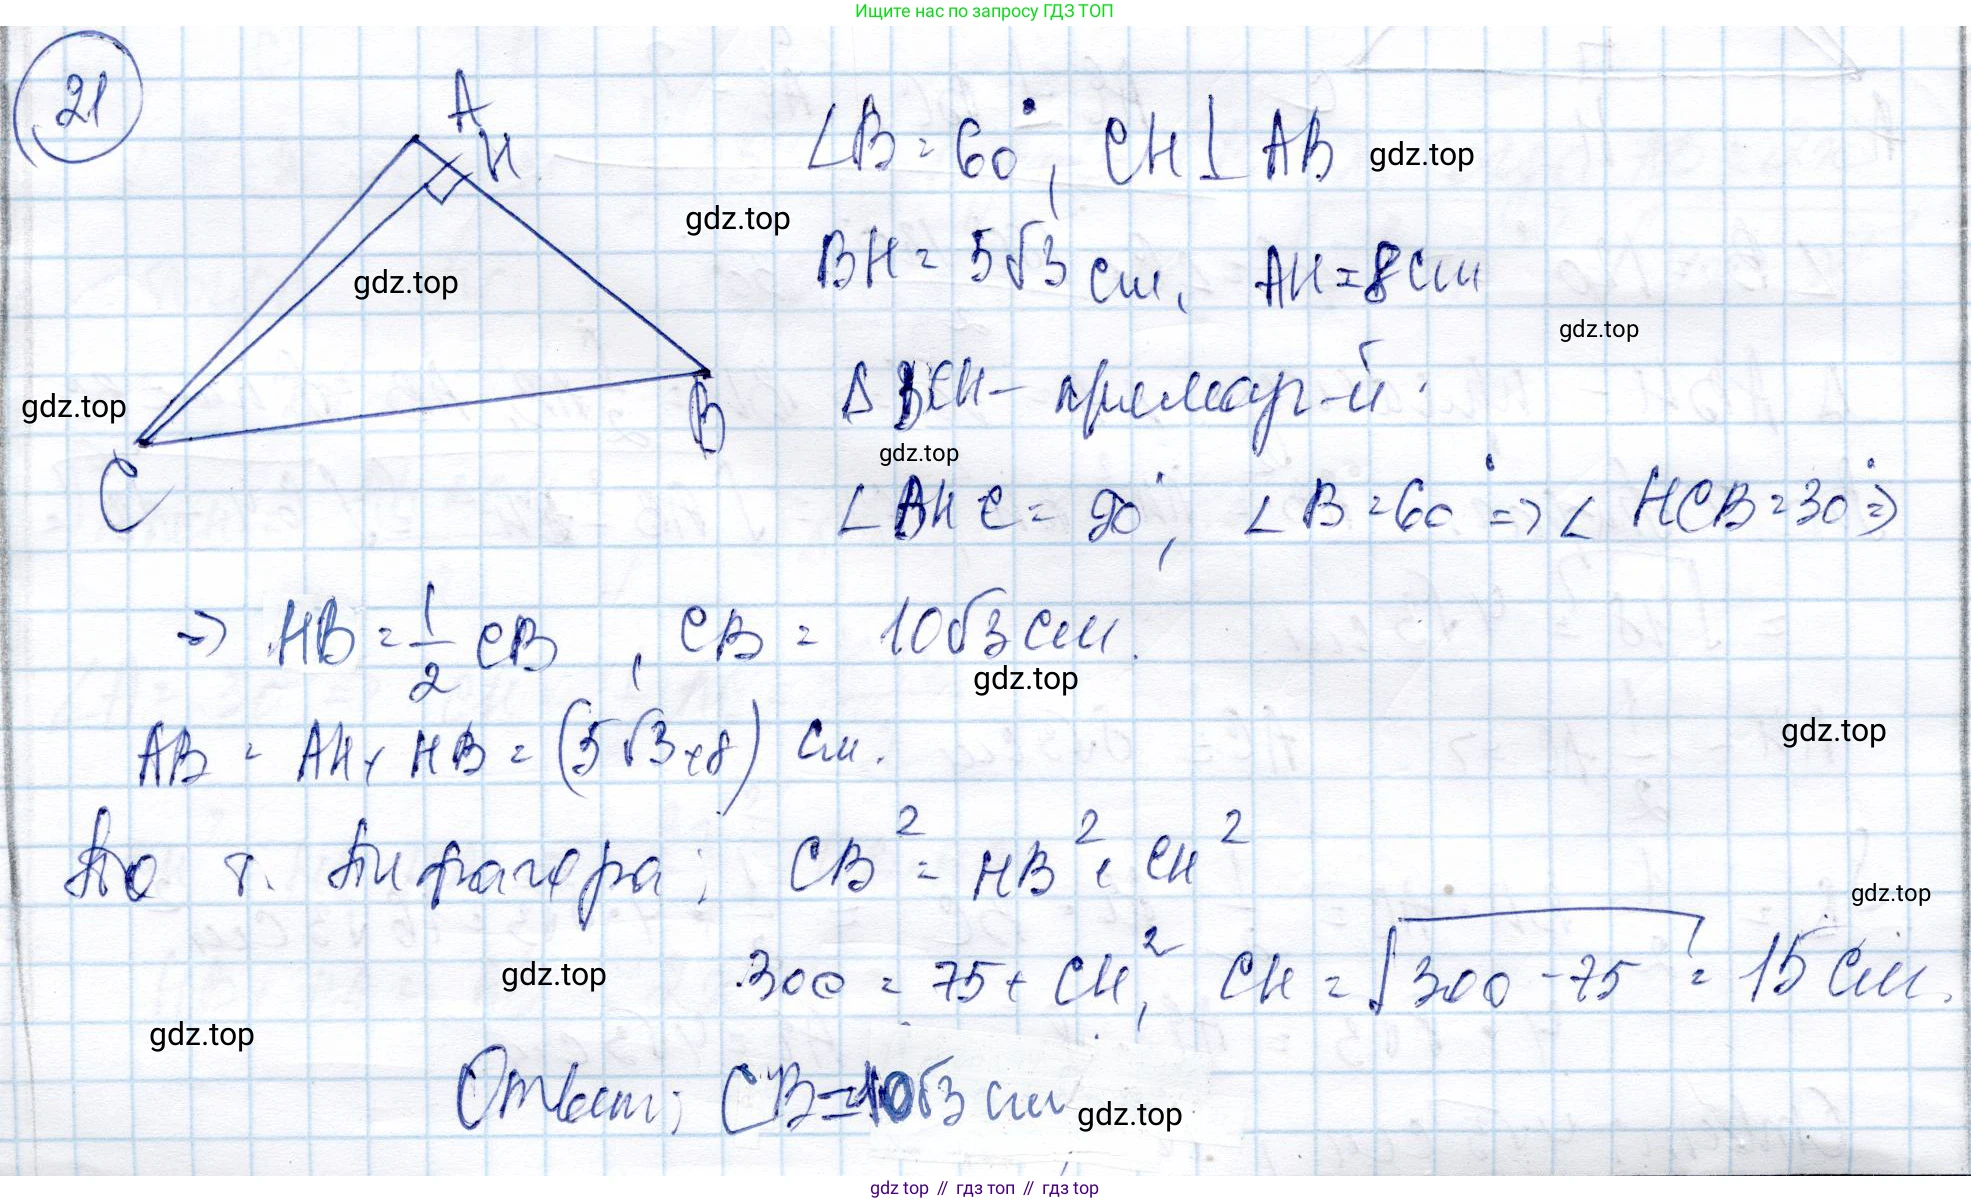 Ищите нас по запросу ГДЗ ТОП
21
A
H
∠B = 60°, CH ⊥ AB
gdz.top
gdz.top
BH = 5√3 см, AH = 8 см
gdz.top
gdz.top
gdz.top
C
B
Δ BCH – прямоуг-й.
gdz.top
∠BHC = 90°, ∠B = 60° => ∠HCB = 30° =>
=> HB = 1/2 CB, CB = 10√3 см.
gdz.top
gdz.top
AB = AH + HB = (5√3 + 8) см.
По т. Пифагора: CB² = HB² + CH²
gdz.top
300 = 75 + CH², CH = √300 – 75 = 15 см.
gdz.top
gdz.top
Ответ: CB = 10√3 см
gdz.top
gdz top // гдз топ // гдз top